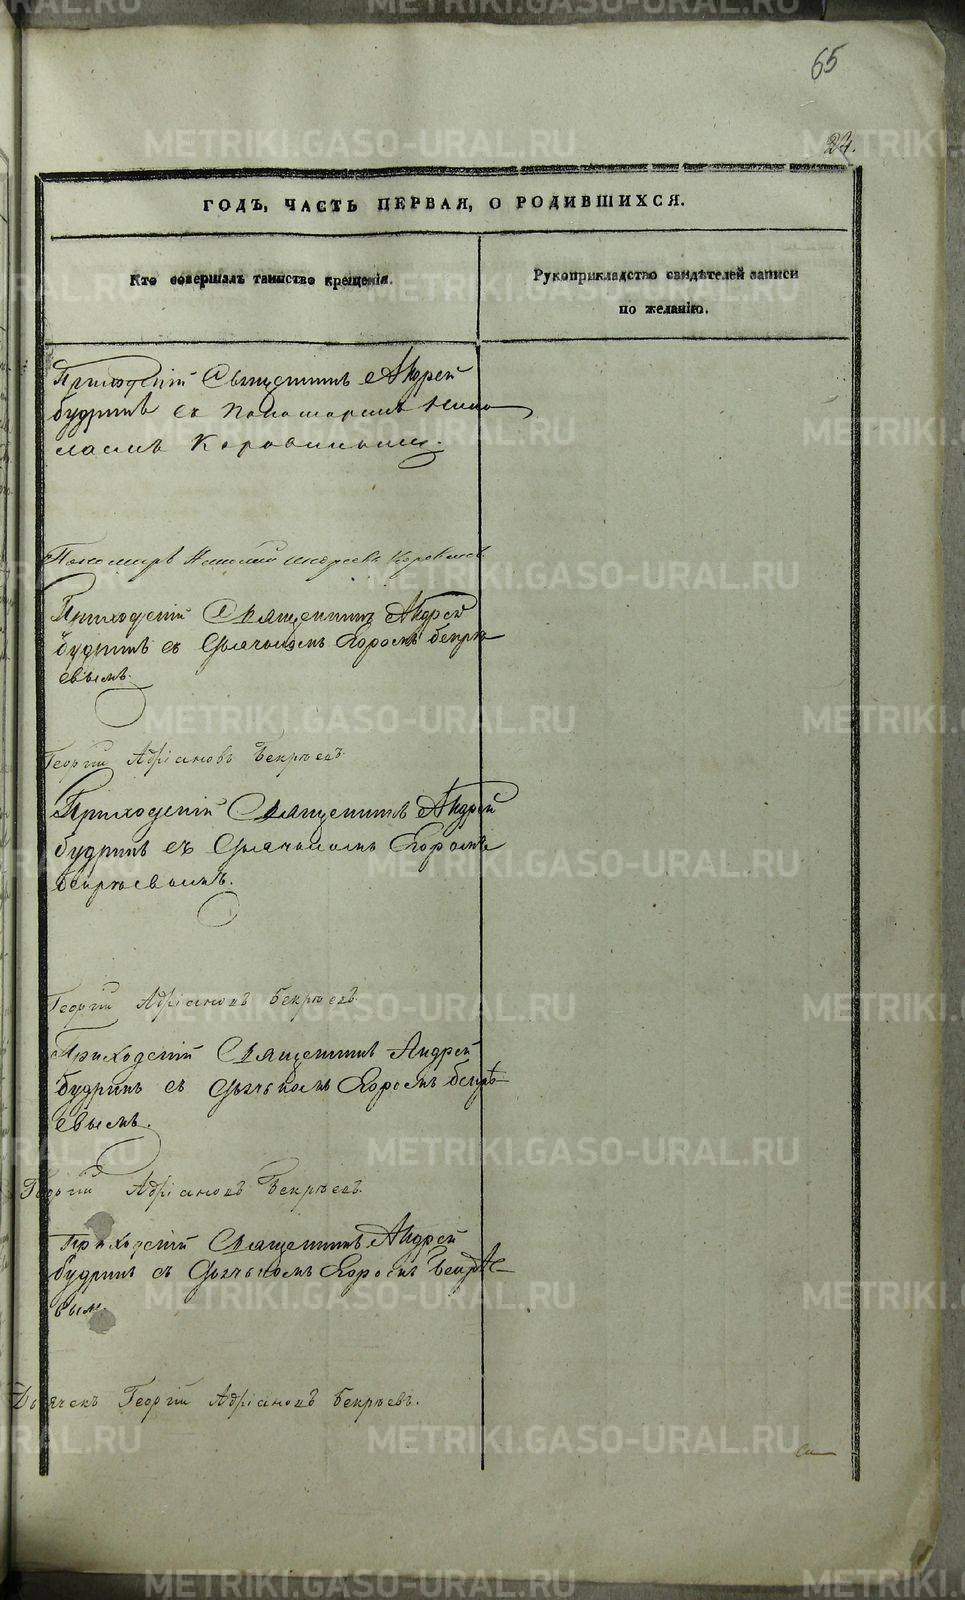 65
24.
ГОДЪ, ЧАСТЬ ПЕРВАЯ, О РОДИВШИХСЯ.
Кто совершалъ таинство крещенія.
Рукоприкладство свидѣтелей записи
по желанію.
Приходскій Священникъ Андрей
Будринъ съ Пономаремъ Нико
лаемъ Коровинымъ.
Пономарь Николай Андреевъ Коровинъ
Приходскій Священникъ Андрей
Будринъ съ Дьячькомъ Егоромъ Бекрѣ
евымъ.
Георгій Адріановъ Бекрѣевъ
Приходскій Священникъ Андрей
Будринъ съ Дьячькомъ Егоромъ
Бекрѣевымъ.
Георгій Адріановъ Бекрѣевъ.
Приходскій Священникъ Андрей
Будринъ съ Дьячькомъ Егоромъ Бекрѣ-
евымъ.
Георгій Адріановъ Бекрѣевъ.
Приходскій Священникъ Андрей
Будринъ съ Дьячькомъ Егоромъ Бекрѣе-
вым.
Дьячекъ Георгій Адріановъ Бекрѣевъ.
METRIKI.GASO-URAL.RU